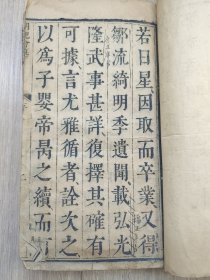 若日星因取而卒業又得
鄒流綺明季遺聞載弘光
隆武事甚詳復擇其確有
可據言尤雅循者詮次之
以為子嬰帝昺之續而有